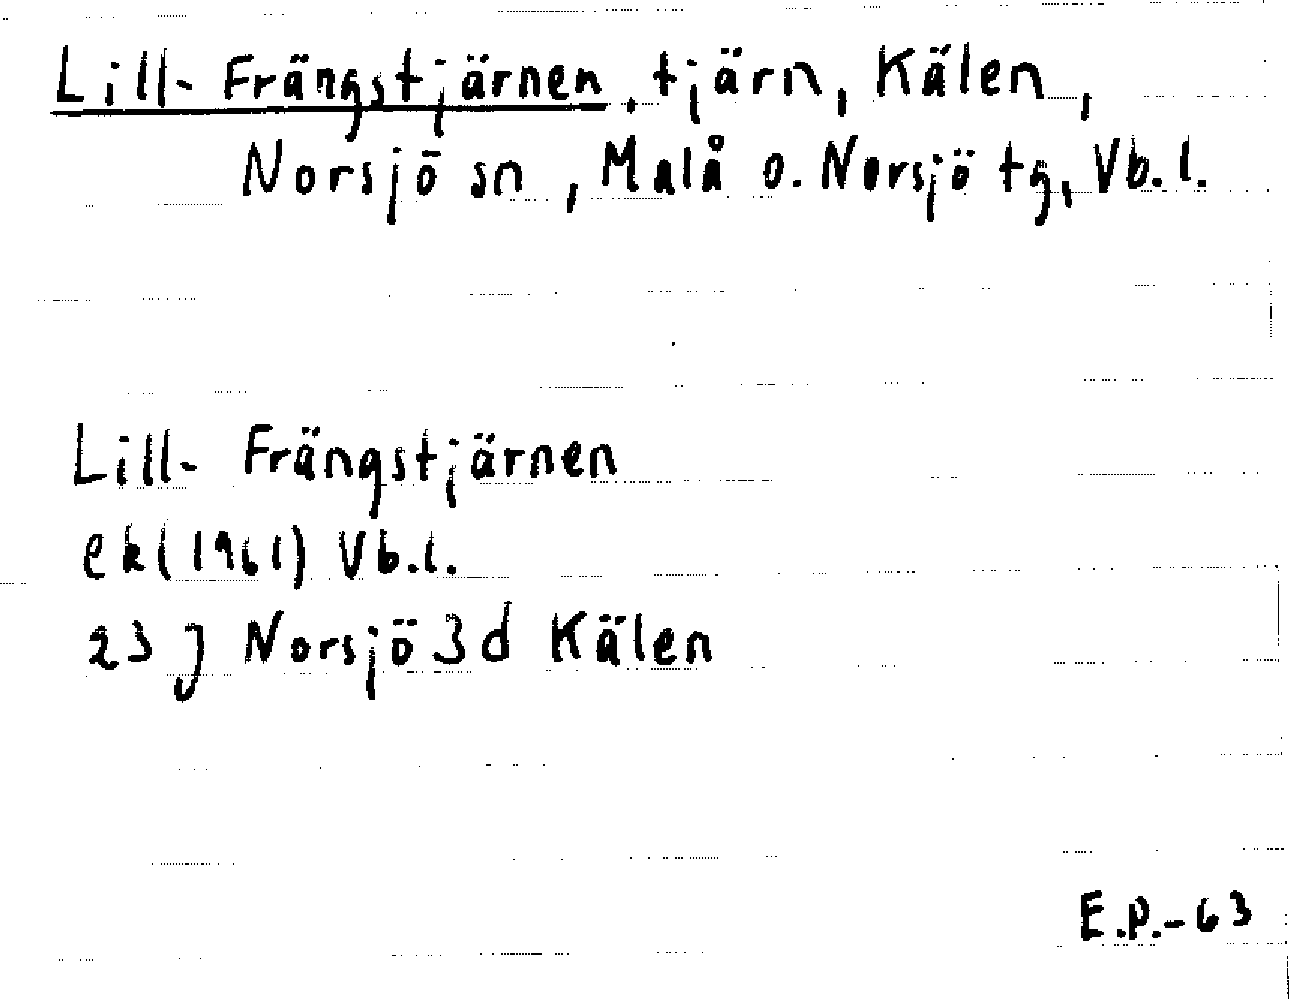 Lill-Frängstjärnen, tjärn, Kälen,
Norsjö sn, Malå o. Norsjö tg, Vb.l.
Lill-Frängstjärnen
ek(1961) Vb.l.
23 J Norsjö 3d Kälen
E.P.-63